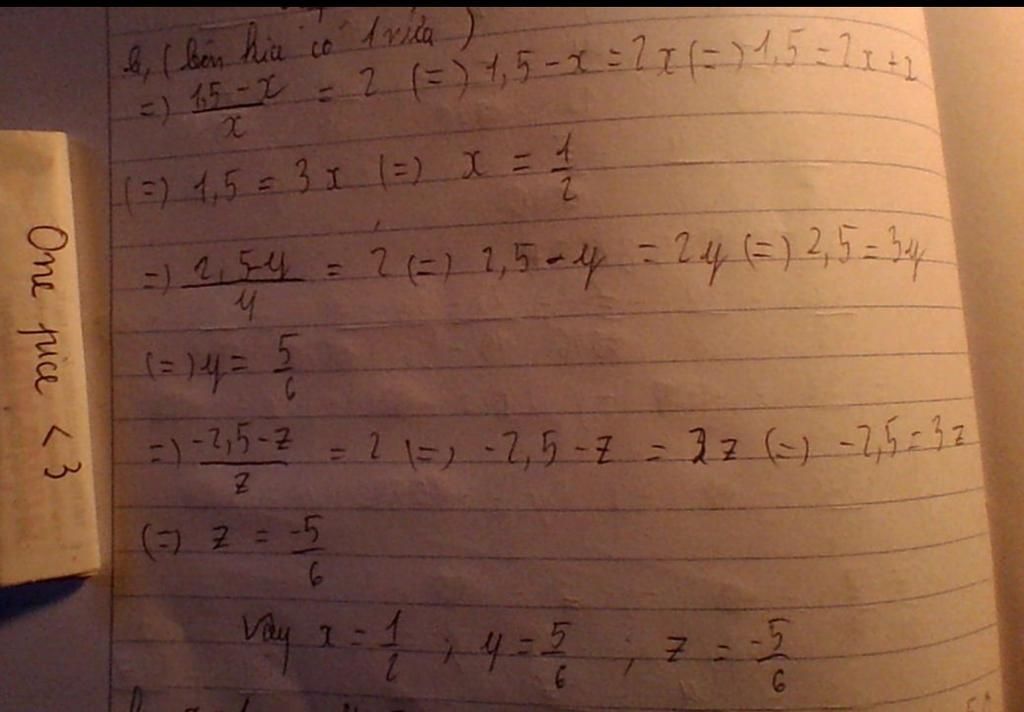 b, (bên kia có 1 nữa)
=) 1,5 - x / x = 2 (=) 1,5 - x = 2x (=) 1,5 = 2x + x
(=) 1,5 = 3x (=) x = 1/2
=) 2,5-y / y = 2 (=) 2,5 - y = 2y (=) 2,5 = 3y
(=) y = 5/6
=) -2,5 - z / z = 2 (=) -2,5 - z = 2z (=) -2,5 = 3z
(=) z = -5/6
Vậy x = 1/2 ; y = 5/6 ; z = -5/6
One pice < 3